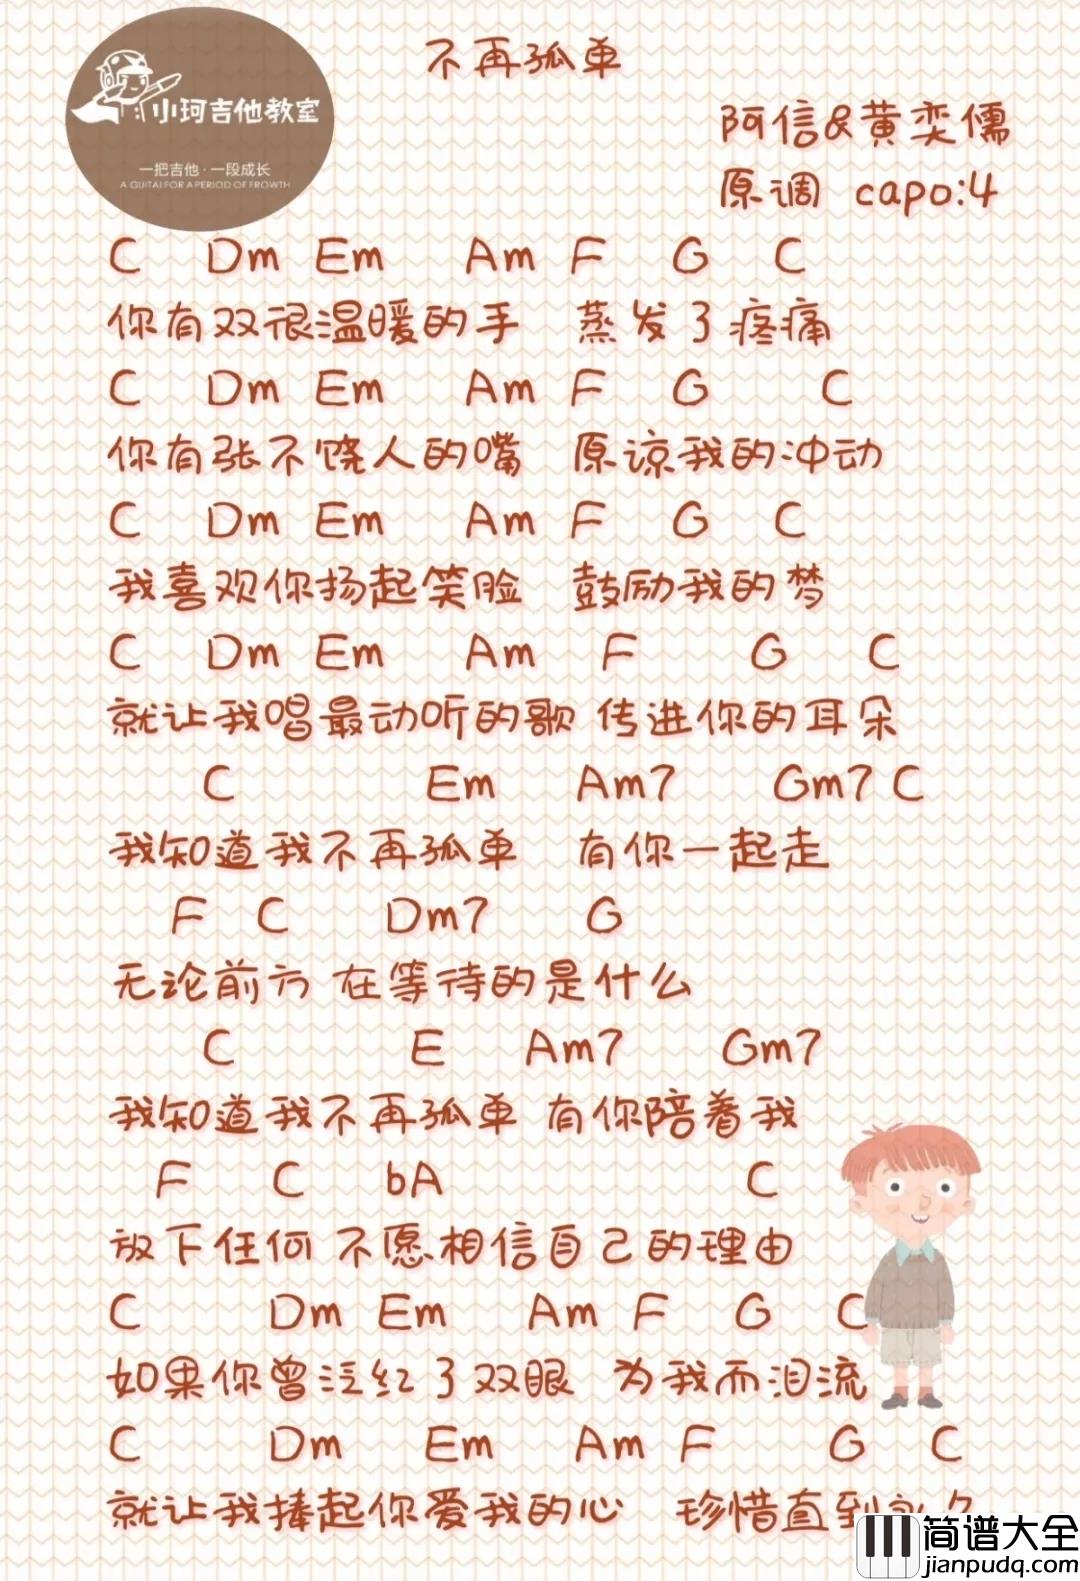 不再孤单
小珂吉他教室
一把吉他·一段成长
A GUITAI FOR A PERIOD OF FROWTH
阿信&黄奕儒
原调 capo:4
C Dm Em Am F G C
你有双很温暖的手 蒸发了疼痛
C Dm Em Am F G C
你有张不饶人的嘴 原谅我的冲动
C Dm Em Am F G C
我喜欢你扬起笑脸 鼓励我的梦
C Dm Em Am F G C
就让我唱最动听的歌 传进你的耳朵
C Em Am7 Gm7 C
我知道我不再孤单 有你一起走
F C Dm7 G
无论前方 在等待的是什么
C E Am7 Gm7
我知道我不再孤单 有你陪着我
F C bA C
放下任何 不愿相信自己的理由
C Dm Em Am F G C
如果你曾泛红了双眼 为我而泪流
C Dm Em Am F G C
就让我捧起你爱我的心 珍惜直到
简谱大全
jianpudq.com